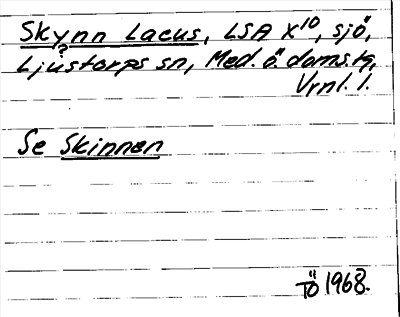 Skynn Lacus, LSA X10, sjö,
?
Ljustorps sn, Med. ö. doms.tg,
Vrnl. l.
Se Skinnen
TÖ 1968.